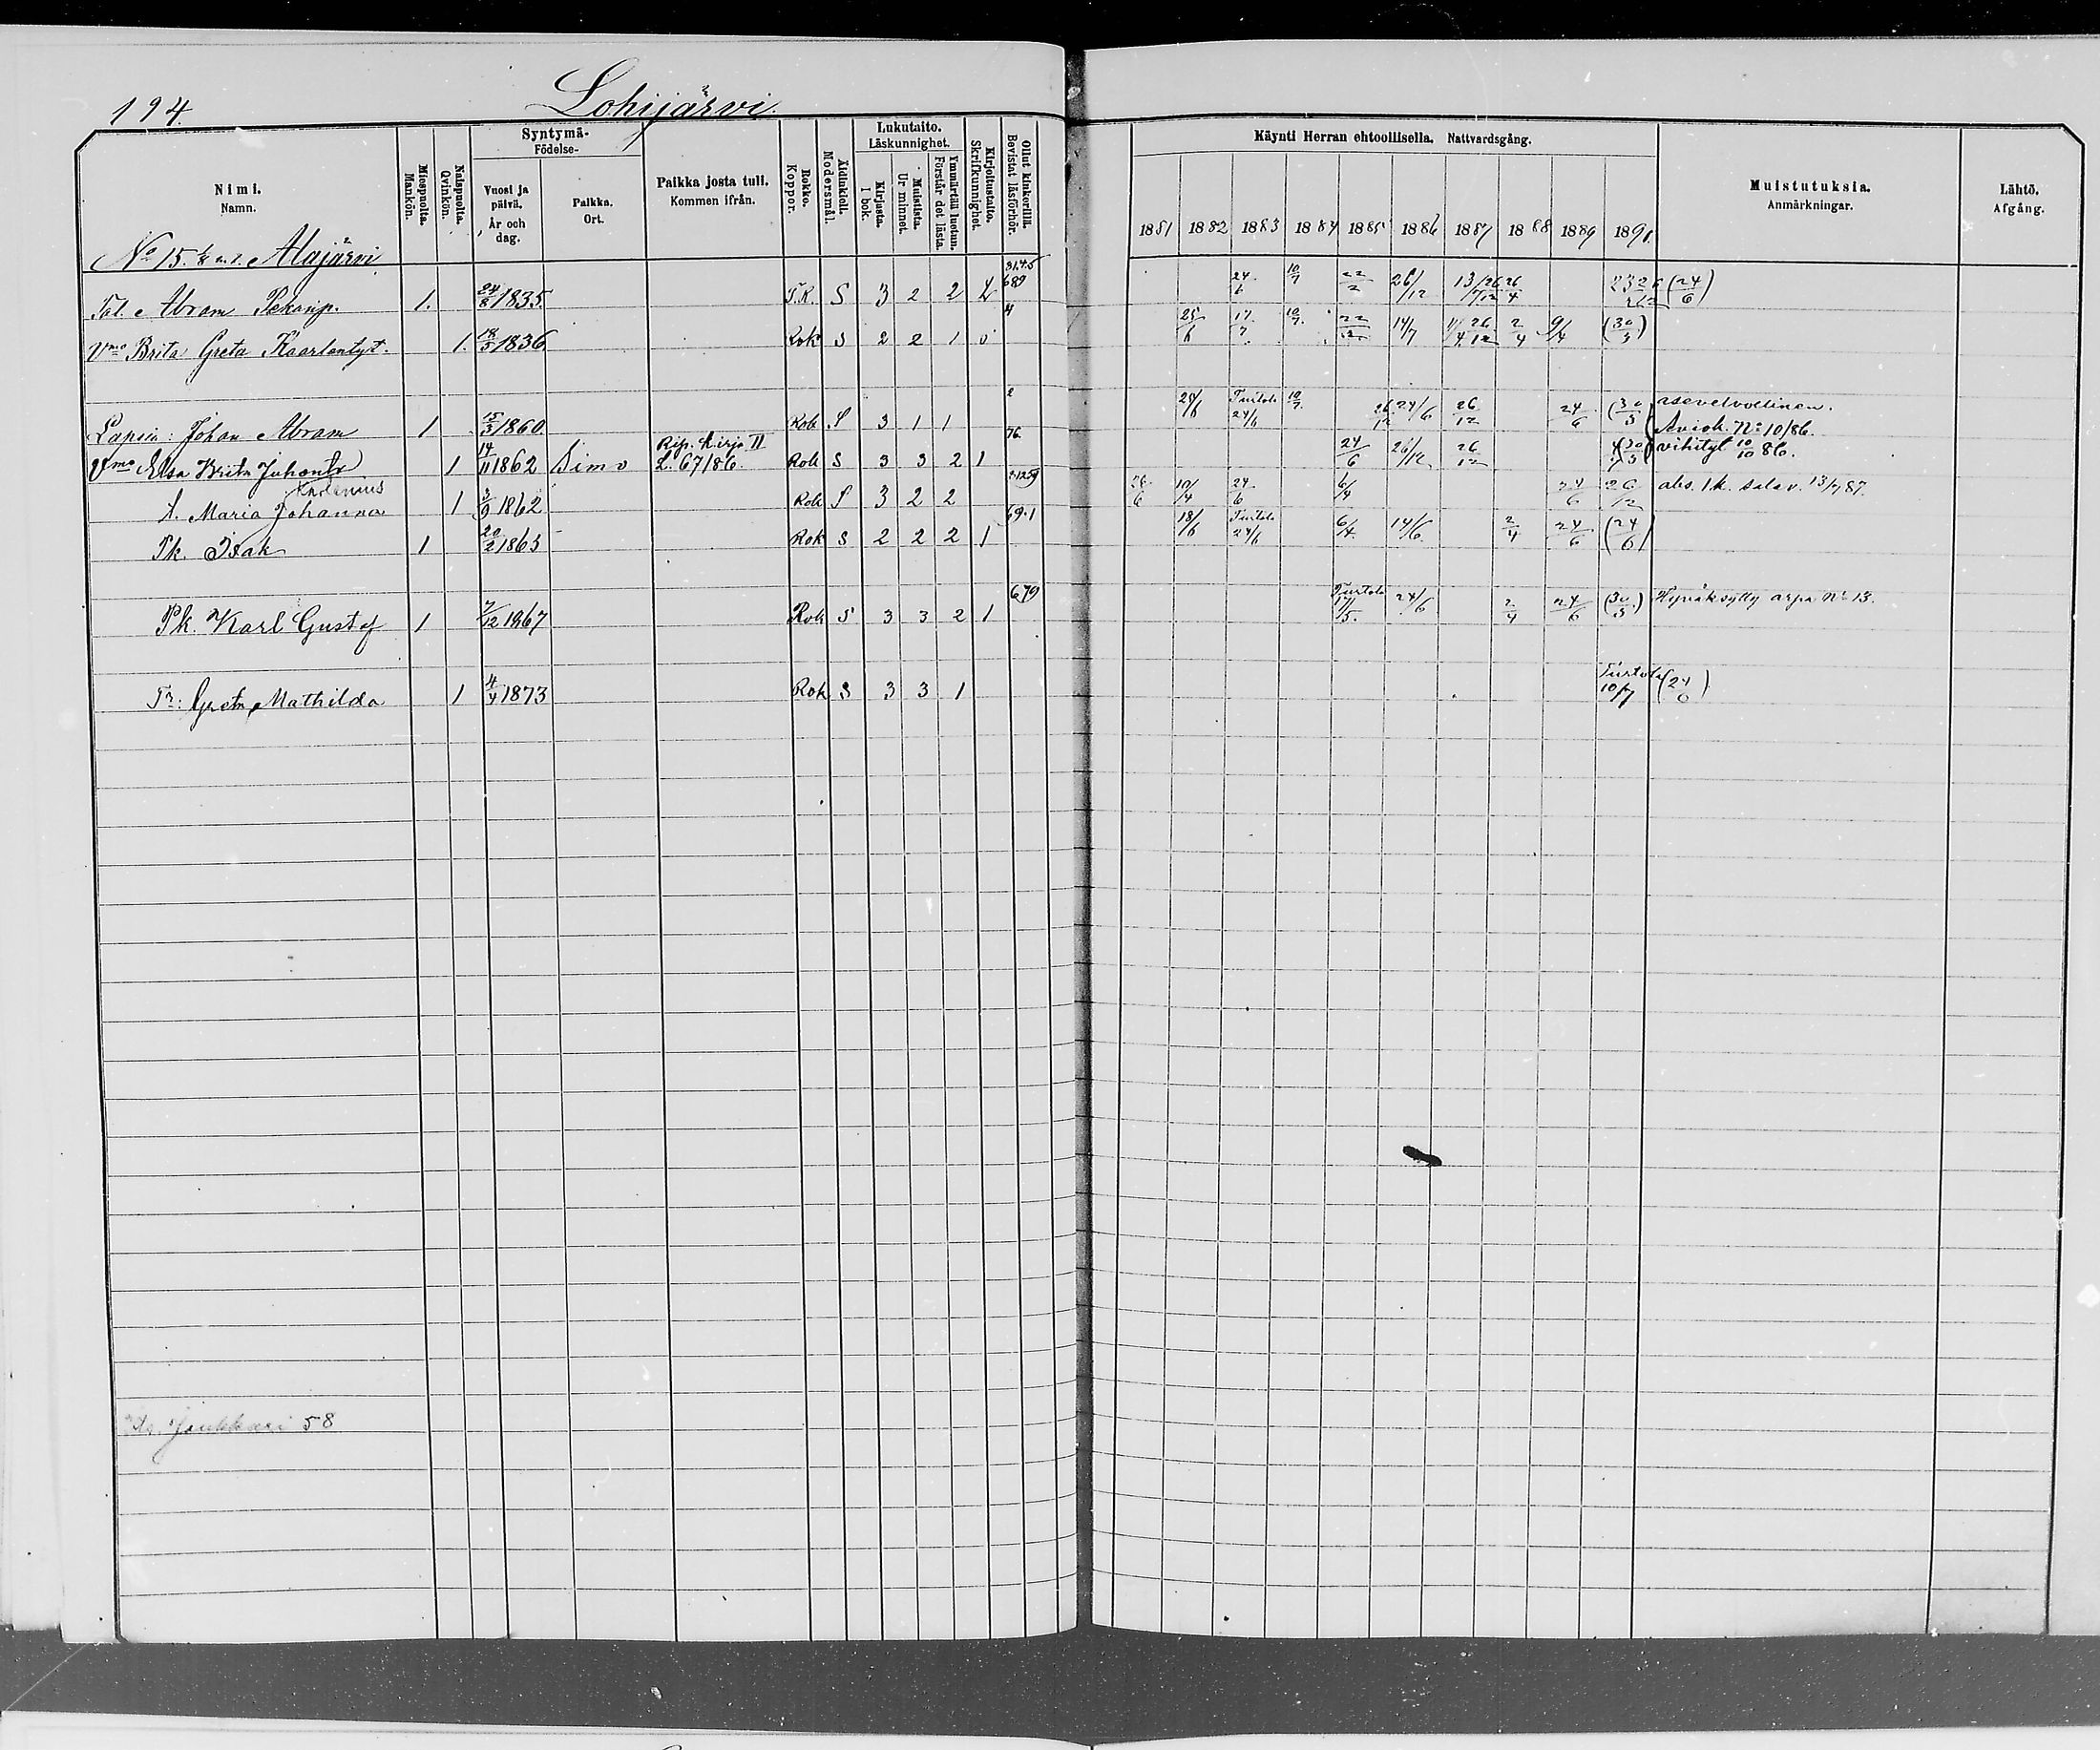 194.
Lohijärvi.
Nimi. Namn.
Miespuolta. Mankön.
Naispuolta. Qvinkön.
Syntymä- Födelse-
Vuosi ja päivä. År och dag.
Paikka. Ort.
Paikka josta tuli. Kommen ifrån.
Rokko. Koppor.
Äidinkieli. Modersmål.
Lukutaito. Läskunnighet.
Kirjasta. I bok.
Muistista. Ur minnet.
Ymmärtää luetun. Förstår det lästa.
Kirjoitustaito. Skrifkunnighet.
Ollut kinkerillä. Bevistat läsförhör.
Käynti Herran ehtoollisella. Nattvardsgång.
1881 1882 1883 1884 1885 1886 1887 1888 1889 1890
Muistutuksia. Anmärkningar.
Lähtö. Afgång.
No 15. Alajärvi
Tal. Abram Pekanp. 1. 24/8 1835. T.R. S 3 2 2 689 24/6 10/7 22/2 26/12 26/4 (24/6)
Vmo Brita Greta Kaarlentyt. 1. 18/5 1836 Rok S 2 2 1 4 25/6 17/7 10/7. 22/2 14/7 2/4 9/4 (30/3)
Lapsia: Johan Abram 1 15/3 1860 Rok S 3 1 1 2 24/6 Turtola 24/6 10/7. 26/12 24/6 26/12 24/6 (30/3) asevelvollinen.
Aviok. No 10/86.
Vmo Elsa Brita Juhontr 1 14/11 1862 Simo Rip. kirja II L. 67/86. Rok S 3 3 2 1 76. 24/6 26/12. 26/12 (30/3) vihityt 10/10 86.
t. Maria Johanna 1 3/9 1862 Rok S 3 2 2 26/6 10/4 24/6 6/4 24/6 26/12 abs. 1 k. salav. 13/7 87.
Pk. Isak 1 20/2 1865 Rok S 2 2 2 1 69.1 18/6 Turtola 24/6 6/4. 14/6. 2/4 24/6 (24/6)
Pk. Karl Gustaf 1 7/12 1867 Rok S 3 3 2 1 679 Turtola 17/5. 24/6 2/4 24/6 (30/3.) Hyväksytty arpa No 13.
Tr: Greta Mathilda 1 4/4 1873 Rok S 3 3 1 Turtola 10/7 (24/6)
Jaukkuri 58